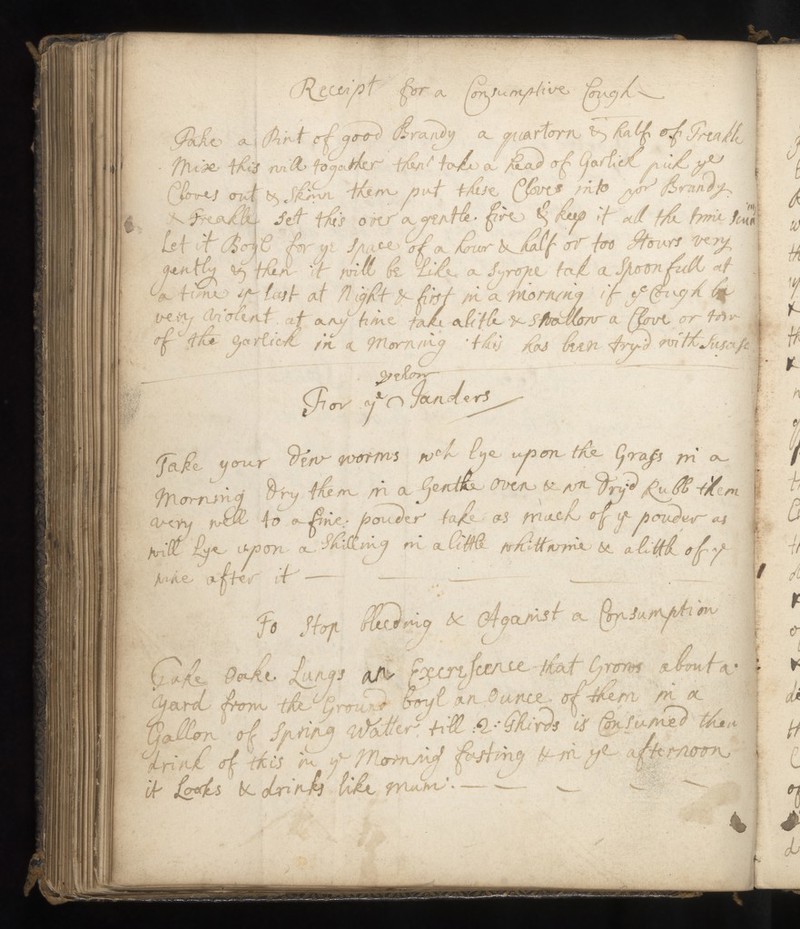 Receipt for a Consumptive Cough
Take a Pint of good Brandy a quartorn & half of Treakle
Mix this will togather then take a head of Garlick pick ye
Cloves out & Skinn them put these Cloves into yor Brandy
& Treakle Set this over a gentle fire & keep it all the time
Let it Boyl for ye Space of a hour & half or too Hours very
gently & then it will be Like a Syrope tak a Spoonfull at
a time ye last at Night & first in a morning if ye Cough be
very violent at any time take a litle & Swallow a Clove or tow
of the garlick in a Morning this has been tryd with
yelow
For ye Janders
Take your Dew worms wch lye upon the Grass in a
Morning Dry them in a Gentle oven & wn Dry'd Rubb them
very well to a fine pouder take as much of ye pouder as
will Lye upon a Shilling in a little whittwine & a little of ye
wine after it
To Stop bleeding & Against a Consumption
Take Oake Lungs an Excresscence that Grows about a
yard from the Ground boyl an Ounce of them in a
Gallon of Spring Watter till :2: Thirds is Consumed then
drink of this in ye Morning fasting & in ye afternoon
it Looks & drinks like mum